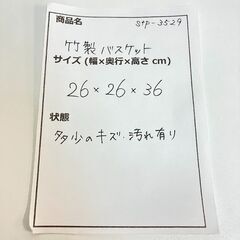 商品名
stp-3529
竹製バスケット
サイズ (幅×奥行×高さ cm)
26×26×36
状態
多少のキズ・汚れ有り